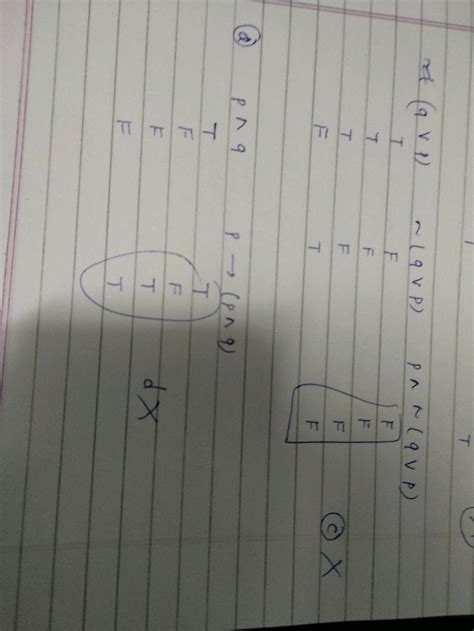 T
(q ∨ p) ~(q ∨ p) p ∧ ~(q ∨ p)
T F F
T F F
T F F
F T F ⓒ X
ⓓ p ∧ q p → (p ∧ q)
T T
F F
F T d X
F T